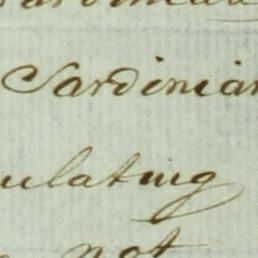 Sardinian
ulating
not